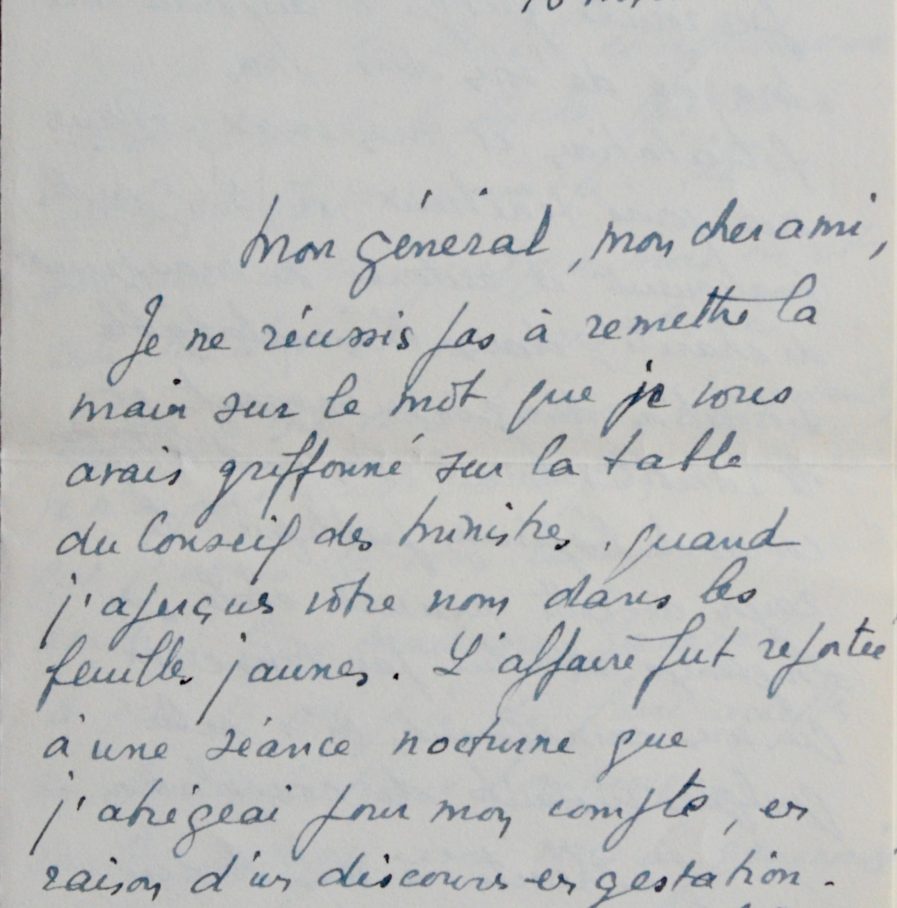 Mon général, mon cher ami,
Je ne réussis pas à remettre la
main sur le mot que je vous
avais griffonné sur la table
du Conseil des Ministres, quand
j'aperçus votre nom dans les
feuilles jaunes. L'affaire fut reportée
à une séance nocturne que
j'abrégeai pour mon compte, en
raison d'un discours en gestation.